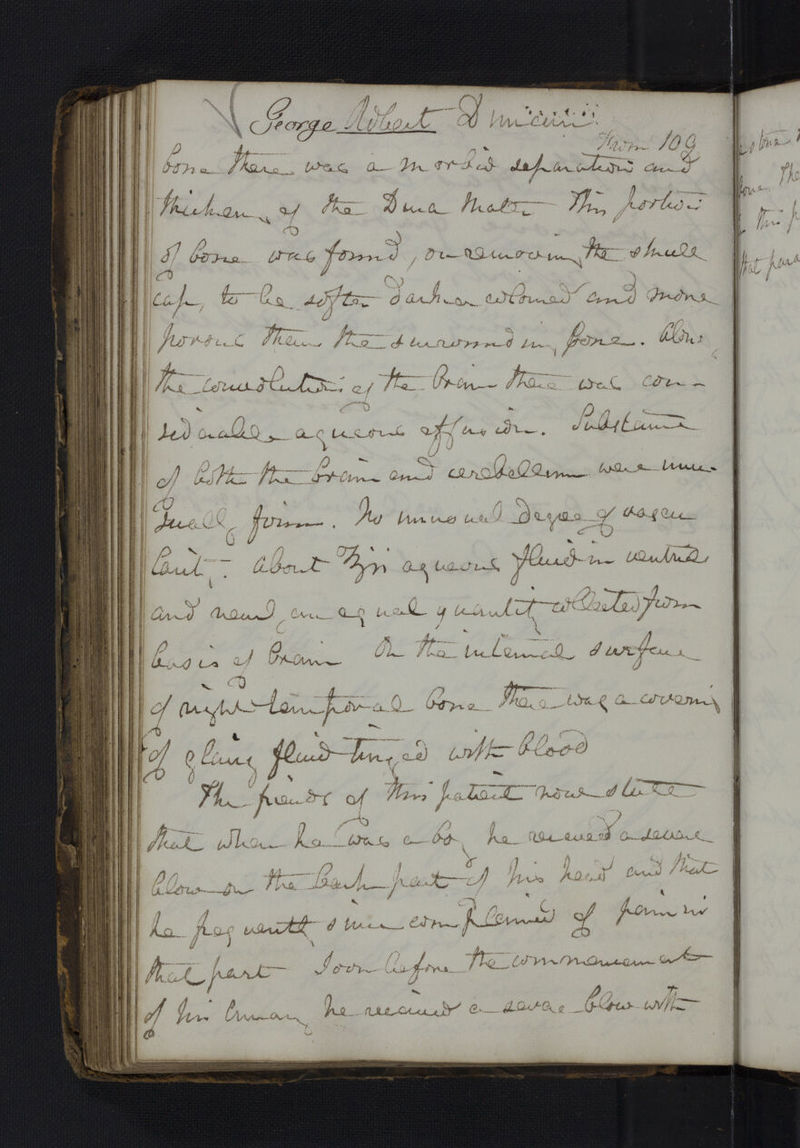 George Robert Duncan
From 109
bone there was a morbid separation and
thicken, of the Dura Mater This portion
of bone was found, on removing the skull
cap, to be softer darker coloured and more
porous than the surrounding bone. Along
the convolutions of the brain there was con-
siderable aqueous effusion. Substance
of both the brain and cerebellum were unu-
sually firm. No unusual degree of vascu
larity. About ʒiii aqueous fluid in ventricles
and nearly an equal quantity collected from
basis of brain On the internal surface
of right temporal bone there was a covering
of glairy fluid tinged with blood
The friends of this patient now state
that when he was a boy he received a severe
blow on the back part of his head and that
he frequently since complained of pain in
that part Soon before the commencement
of his Insanity he received a severe blow with